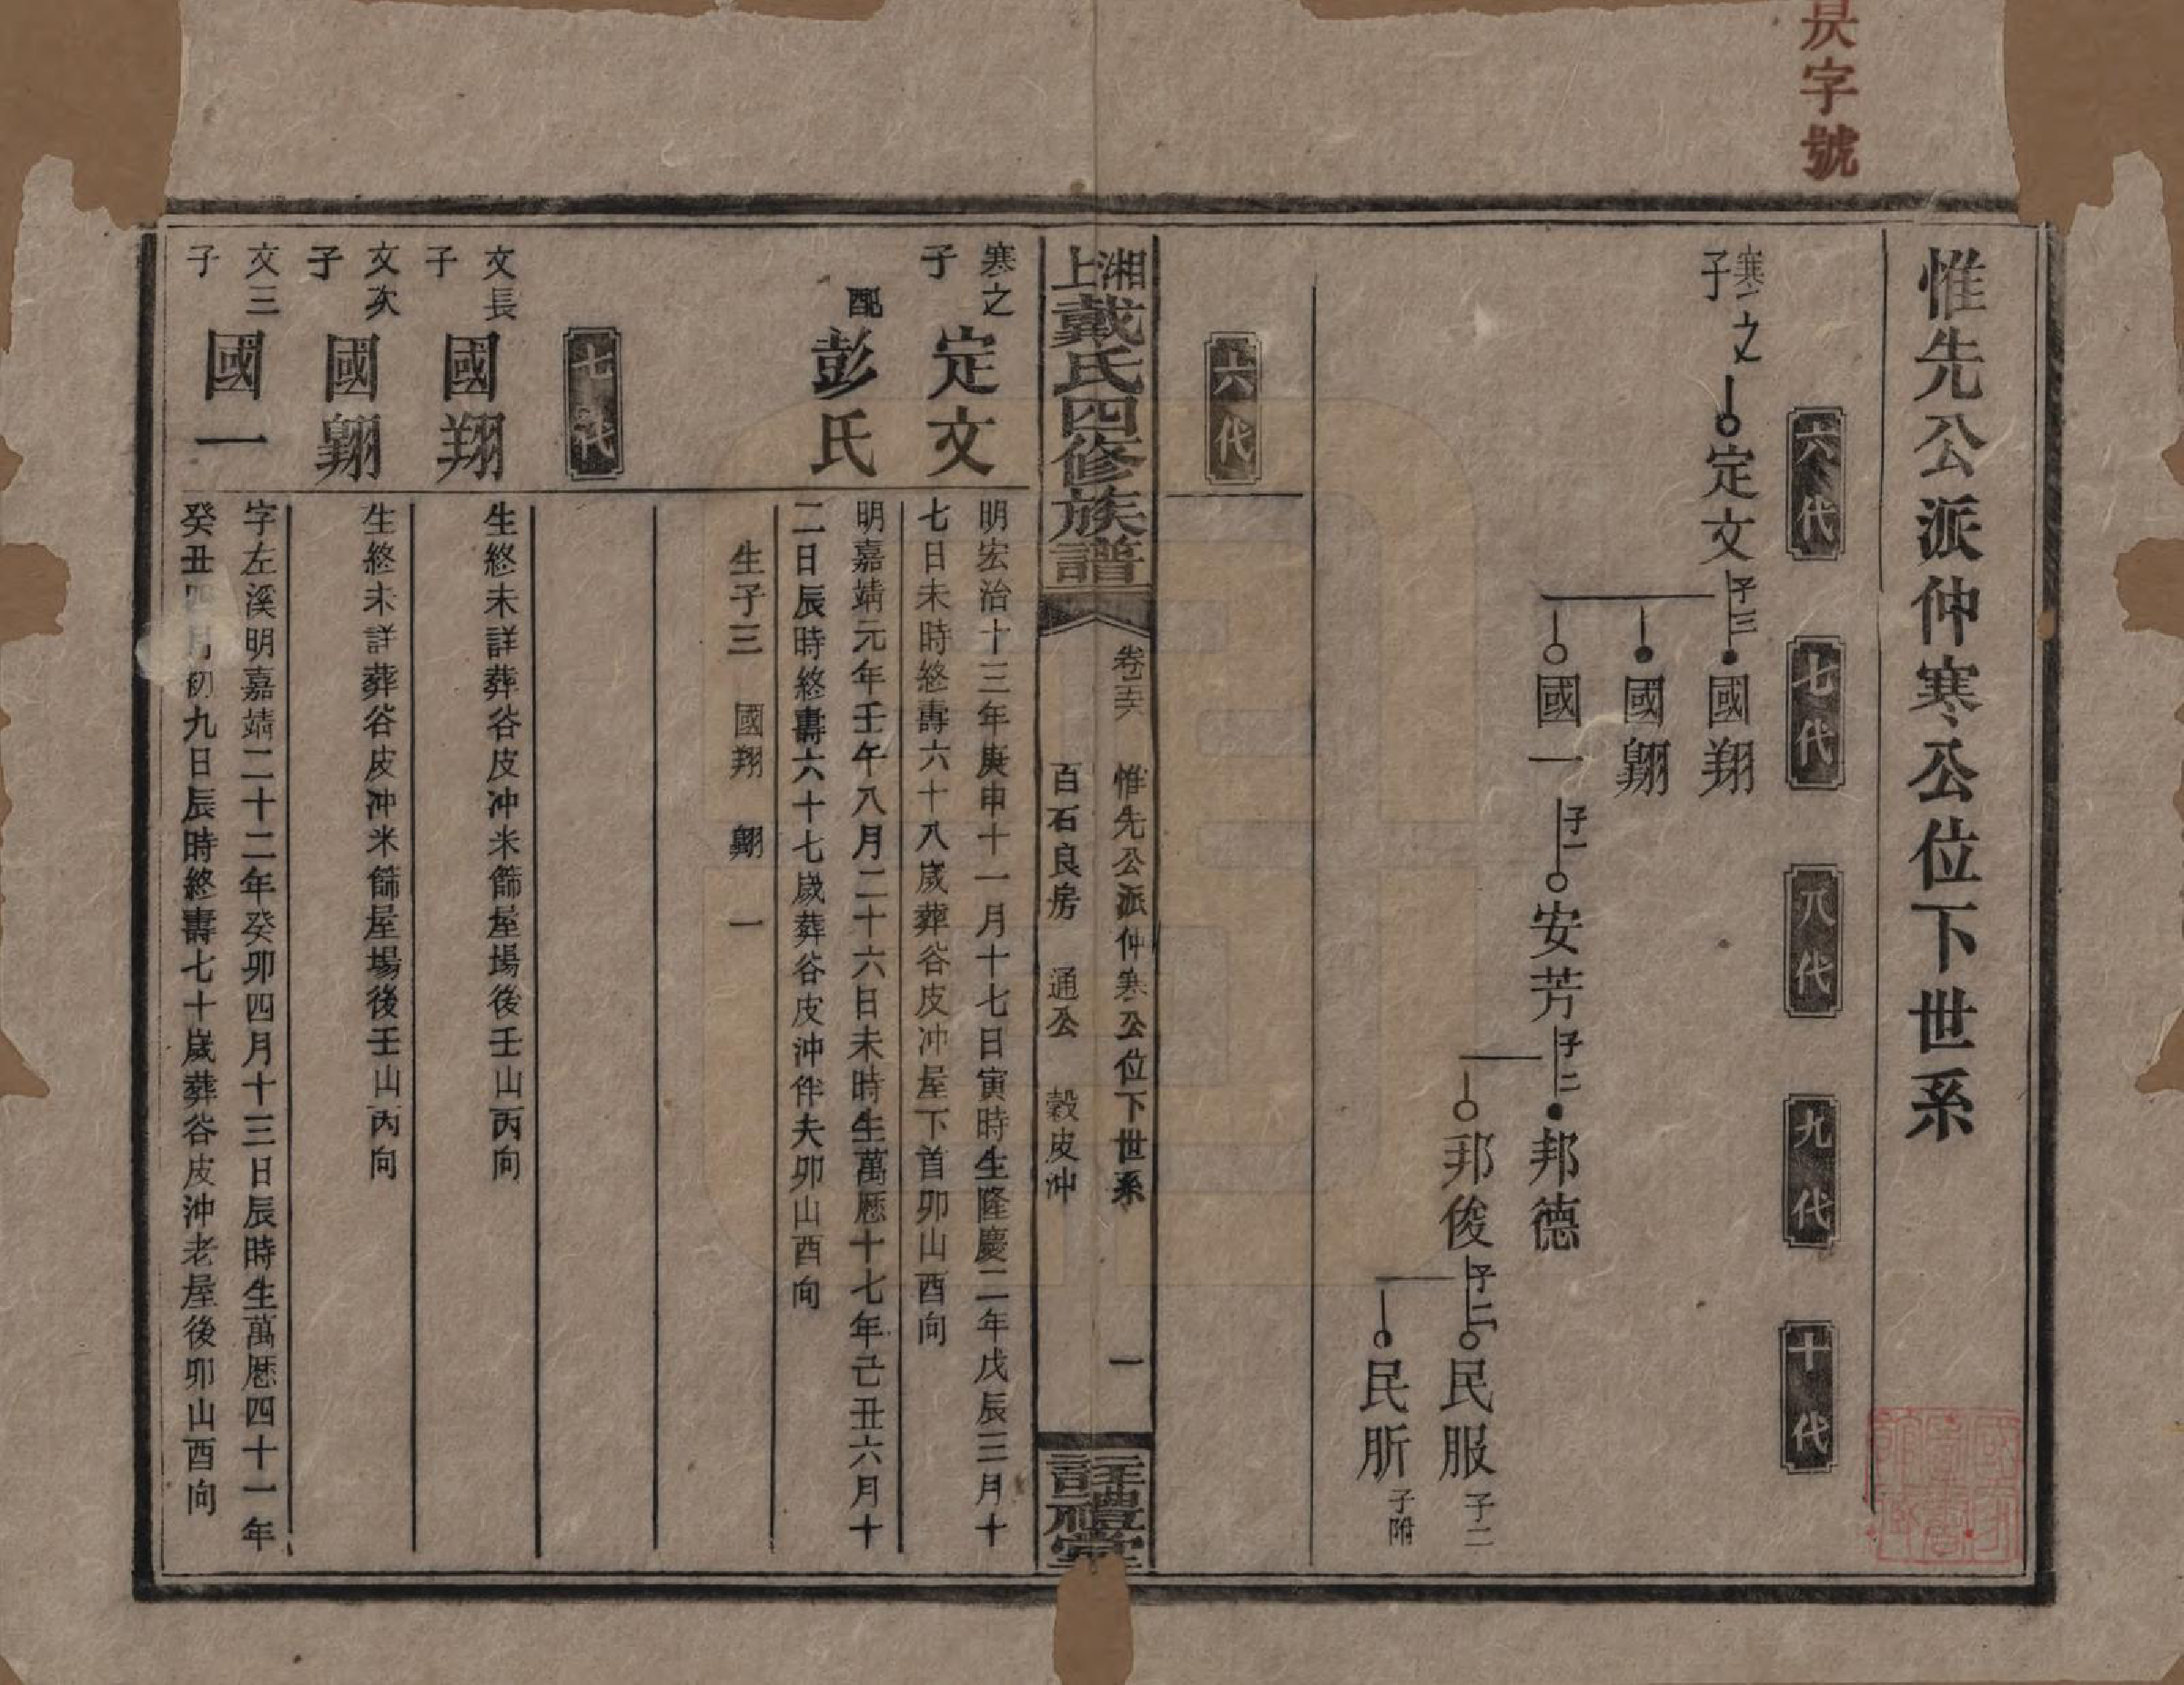 昃字號
惟先公派仲寒公位下世系
六代 七代 八代 九代 十代
寒之子 定文 子三 國翔
國翺
國一 子一 安芳 子二 邦德
邦俊 子二 民服 子二
民肵 子附
六代
湘上戴氏四修族譜 卷 惟先公派仲寒公位下世系 一
百石良房 通公 穀皮沖 註禮堂
寒之子 定文 明宏治十三年庚申十一月十七日寅時生隆慶二年戊辰三月十
七日未時終壽六十八歲葬谷皮沖屋下首卯山酉向
配 彭氏 明嘉靖元年壬午八月二十六日未時生萬歷十七年己丑六月十
二日辰時終壽六十七歲葬谷皮沖伴夫卯山酉向
生子三 國翔 翺 一
七代
文長子 國翔 生終未詳葬谷皮沖米篩屋場後壬山丙向
文次子 國翺 生終未詳葬谷皮沖米篩屋場後壬山丙向
文三子 國一 字左溪明嘉靖二十二年癸卯四月十三日辰時生萬歷四十一年
癸丑四月初九日辰時終壽七十歲葬谷皮沖老屋後卯山酉向